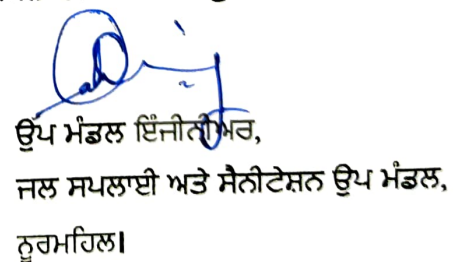 ਉਪ ਮੰਡਲ ਇੰਜੀਨੀਅਰ,
ਜਲ ਸਪਲਾਈ ਅਤੇ ਸੈਨੀਟੇਸ਼ਨ ਉਪ ਮੰਡਲ,
ਨੂਰਮਹਿਲ।